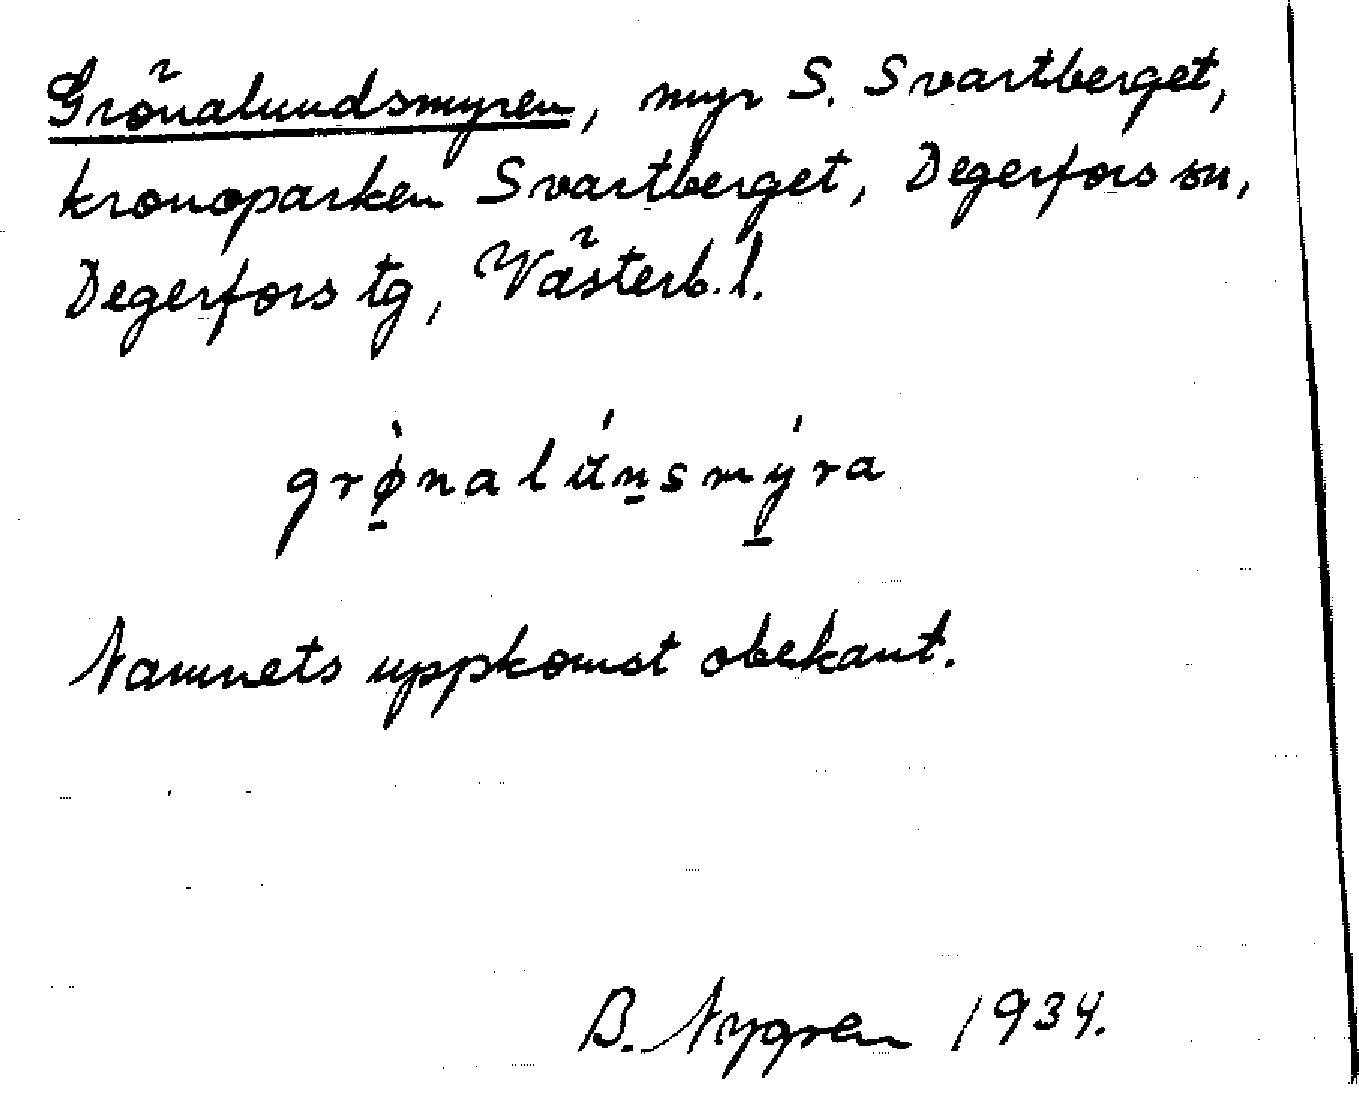 Grönalundsmyren, myr S. Svartberget,
kronoparken Svartberget, Degerfors sn,
Degerfors tg, Västerb. l.
grø̱̀nalúṉsmý̱ra
Namnets uppkomst obekant.
B. Nygren 1934.